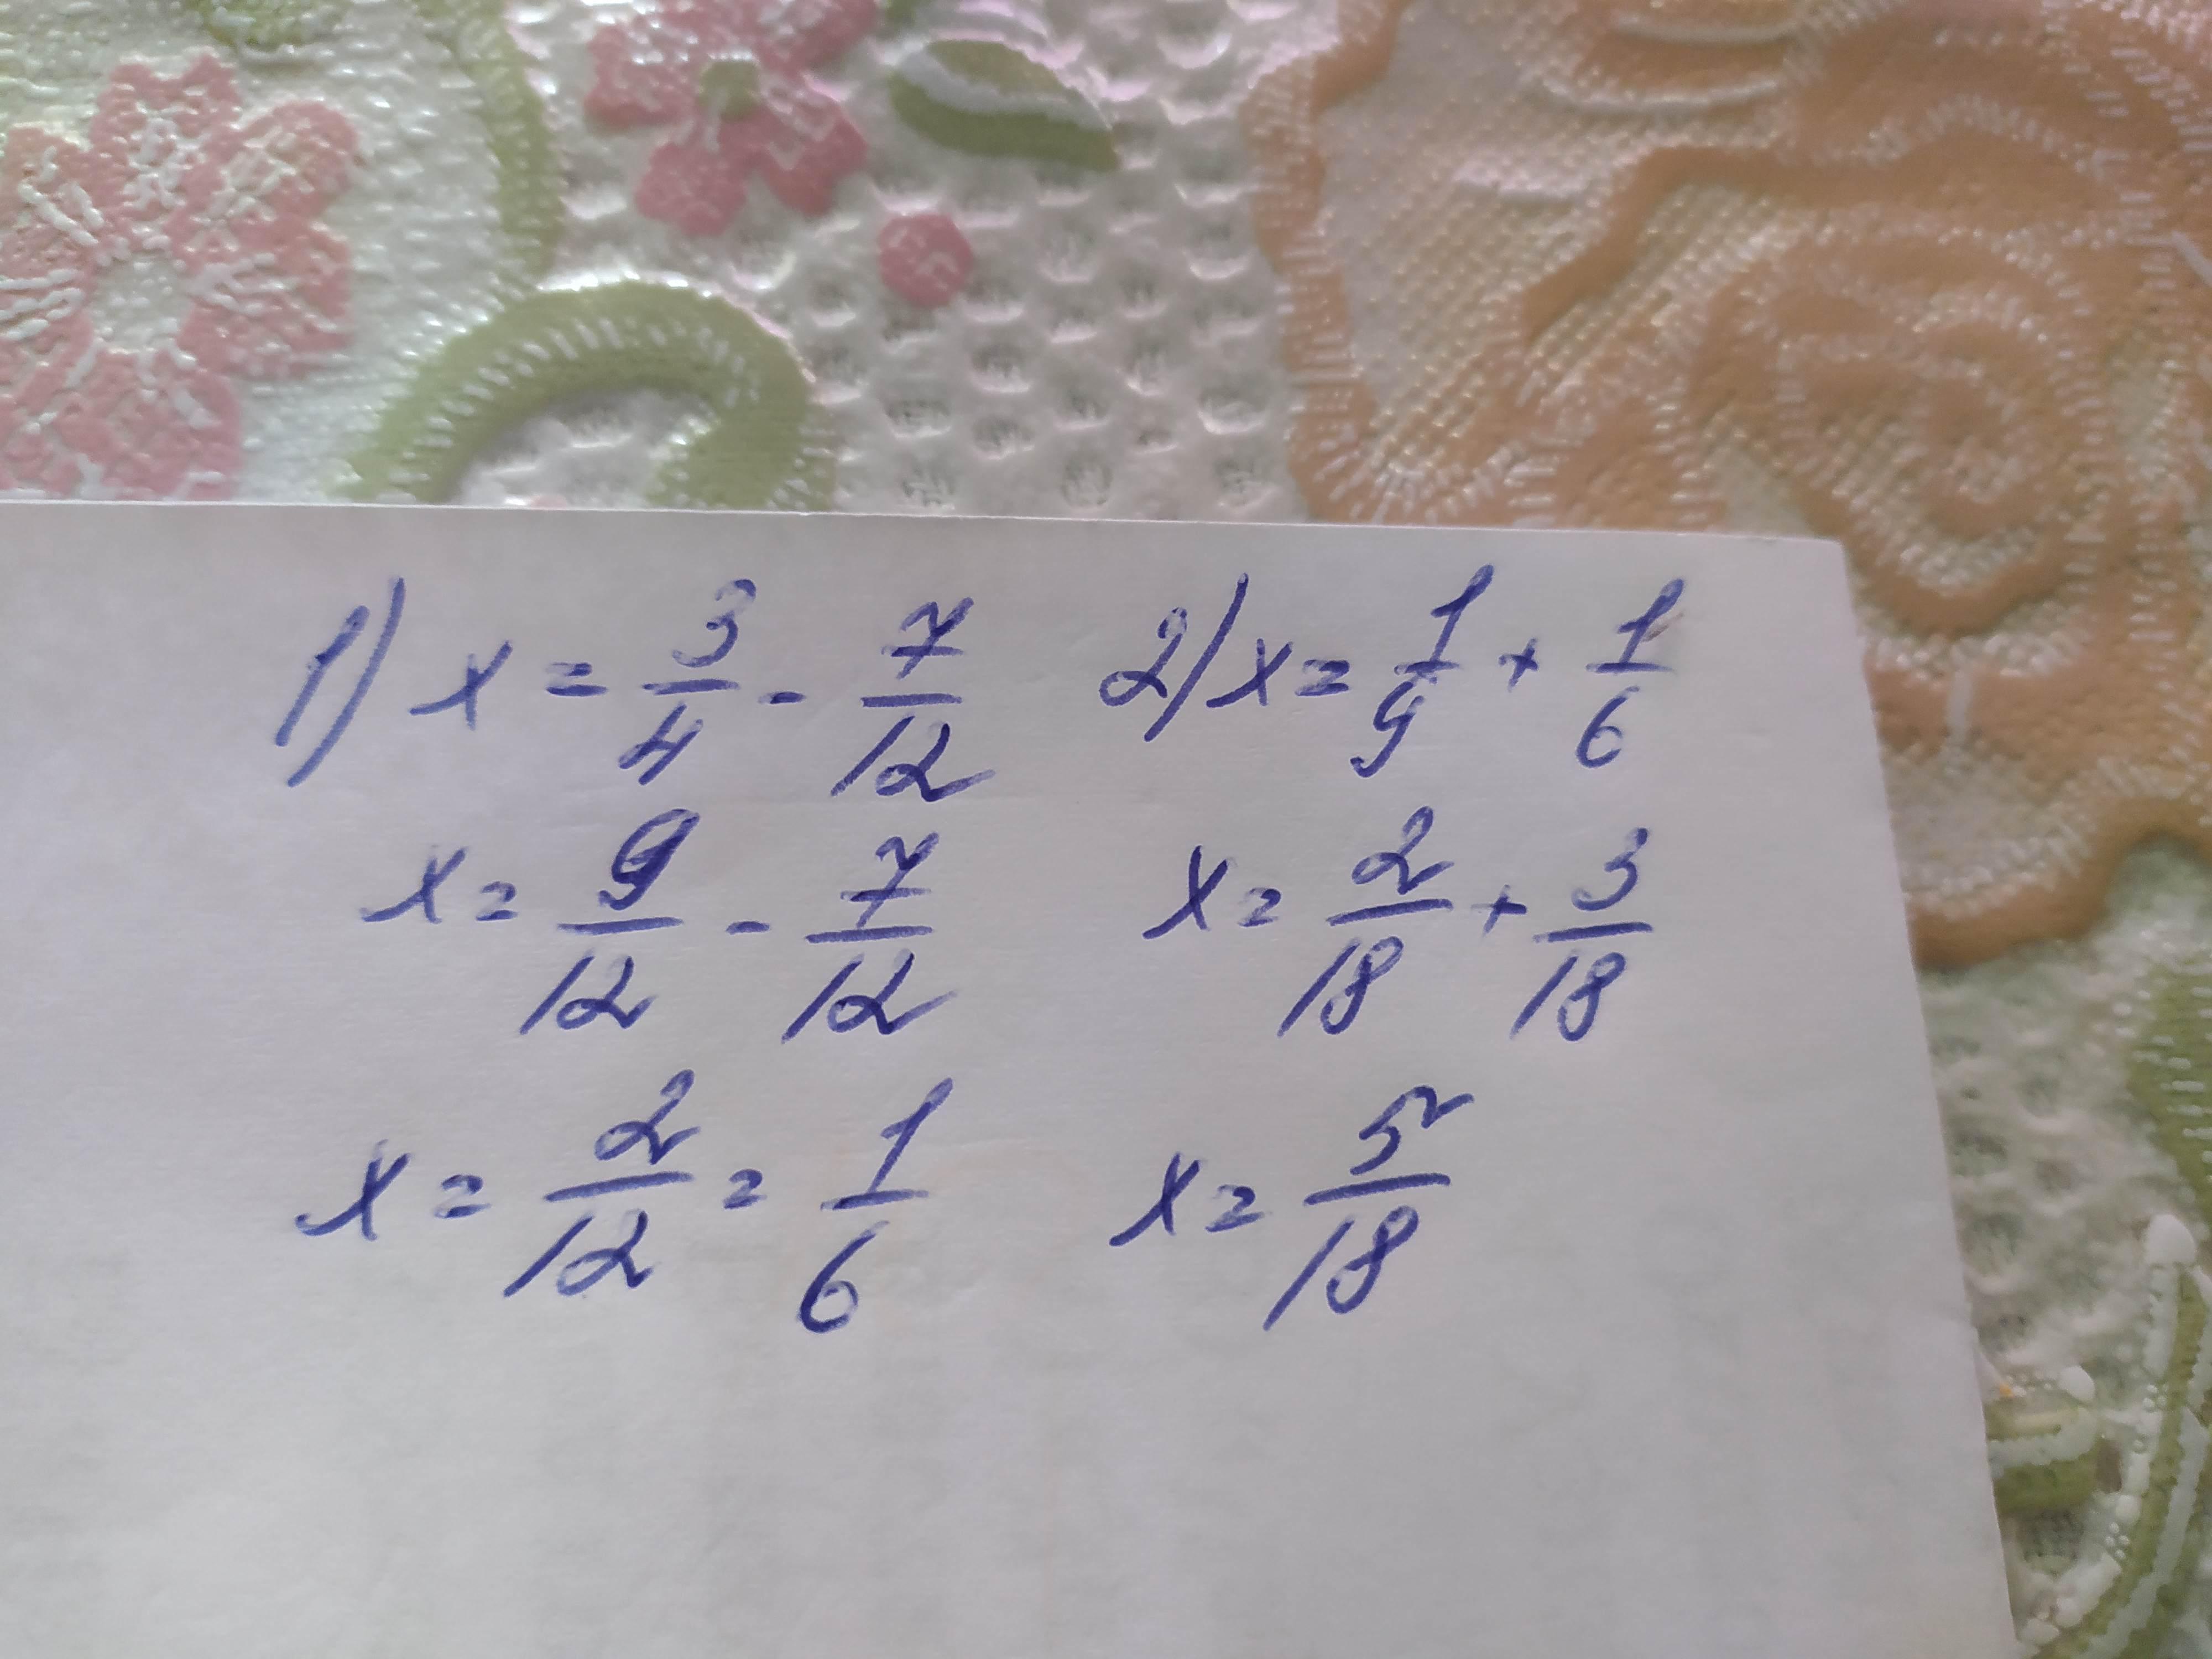 1) x = 3/4 - 7/12
x = 9/12 - 7/12
x = 2/12 = 1/6
2) x = 1/9 + 1/6
x = 2/18 + 3/18
x = 5/18